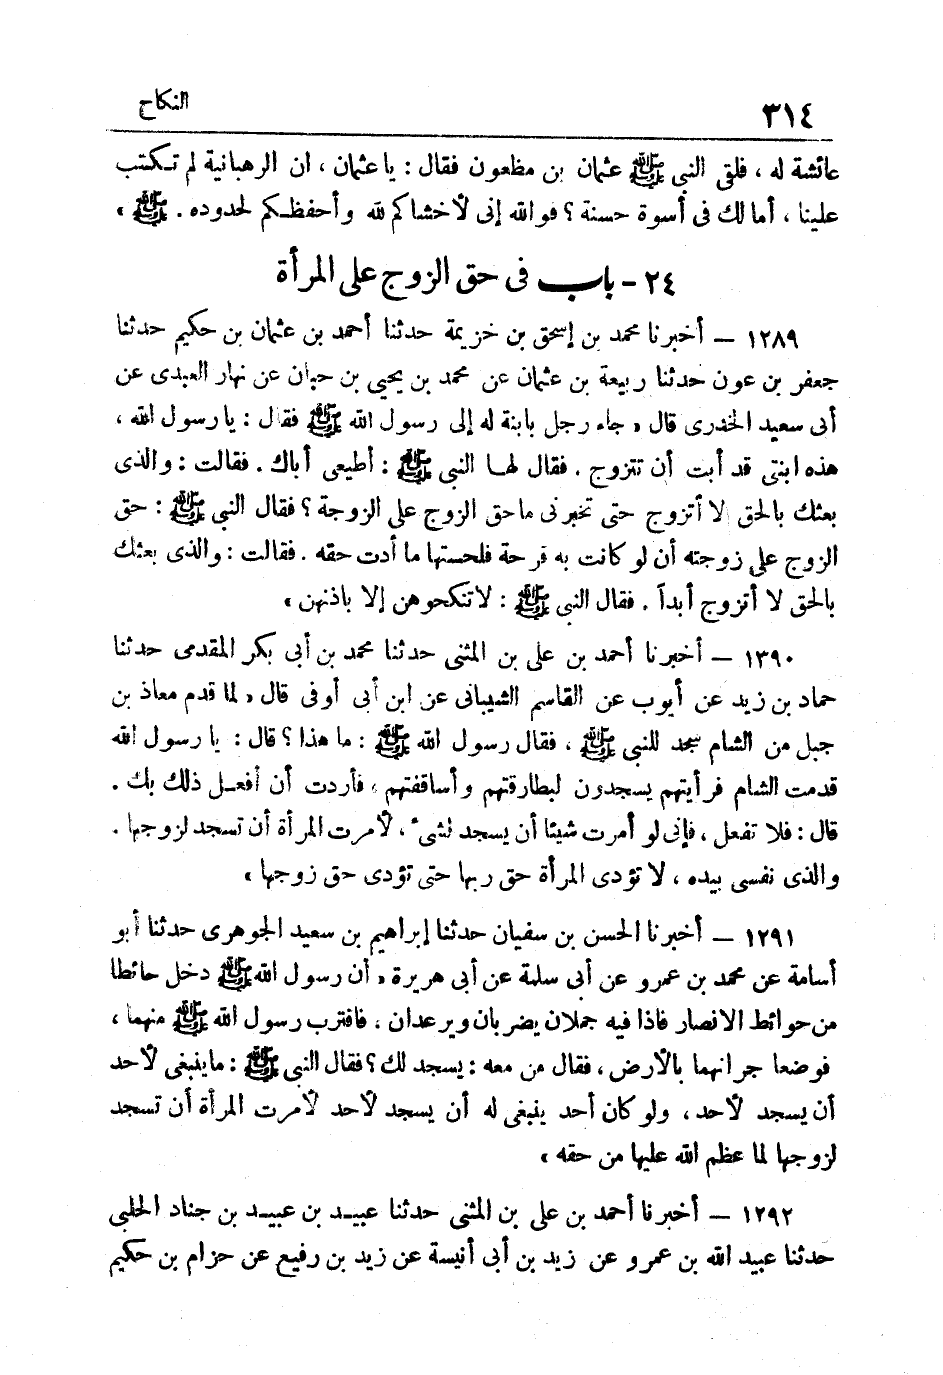 ٣١٤ النكاح
عائشة له ، فلقى النبى ﷺ عثمان بن مظعون فقال : يا عثمان ، ان الرهبانية لم تكتب
علينا ، أما لك فى أسوة حسنة ؟ فوالله إنى لأخشاكم لله وأحفظكم لحدوده . ﷺ »
٢٤ - باب فى حق الزوج على المرأة
١٢٨٩ – أخبرنا محمد بن إسحق بن خزيمة حدثنا أحمد بن عثمان بن حكيم حدثنا
جعفر بن عون حدثنا ربيعة بن عثمان عن محمد بن يحيى بن حبان عن نهار العبدى عن
أبى سعيد الخدرى قال « جاء رجل بابنة له إلى رسول الله ﷺ فقال : يا رسول الله ،
هذه ابنتى قد أبت أن تتزوج . فقال لها النبى ﷺ : أطيعى أباك . فقالت : والذى
بعثك بالحق لا أتزوج حتى تخبرنى ما حق الزوج على الزوجة ؟ فقال النبى ﷺ : حق
الزوج على زوجته أن لو كانت به قرحة فلحستها ما أدت حقه . فقالت : والذى بعثك
بالحق لا أتزوج أبداً . فقال النبى ﷺ : لا تنكحوهن إلا باذنهن »
١٣٩٠ – أخبرنا أحمد بن على بن المثنى حدثنا محمد بن أبى بكر المقدمى حدثنا
حماد بن زيد عن أيوب عن القاسم الشيبانى عن ابن أبى أوفى قال « لما قدم معاذ بن
جبل من الشام سجد للنبى ﷺ ، فقال رسول الله ﷺ : ما هذا ؟ قال : يا رسول الله
قدمت الشام فرأيتهم يسجدون لبطارقتهم وأساقفتهم ، فأردت أن أفعل ذلك بك .
قال : فلا تفعل ، فإنى لو أمرت شيئا أن يسجد لشىء ، لأمرت المرأة أن تسجد لزوجها .
والذى نفسى بيده ، لا تؤدى المرأة حق ربها حتى تؤدى حق زوجها »
١٢٩١ – أخبرنا الحسن بن سفيان حدثنا إبراهيم بن سعيد الجوهرى حدثنا أبو
أسامة عن محمد بن عمرو عن أبى سلمة عن أبى هريرة « أن رسول الله ﷺ دخل حائطا
من حوائط الانصار فاذا فيه جملان يضربان ويرعدان ، فاقترب رسول الله ﷺ منهما ،
فوضعا جرانهما بالأرض ، فقال من معه : يسجد لك ؟ فقال النبى ﷺ : ما ينبغى لأحد
أن يسجد لأحد ، ولو كان أحد ينبغى له أن يسجد لأحد لأمرت المرأة أن تسجد
لزوجها لما عظم الله عليها من حقه »
١٢٩٢ – أخبرنا أحمد بن على بن المثنى حدثنا عبيد بن عبيد بن جناد الحلبى
حدثنا عبيد الله بن عمرو عن زيد بن أبى أنيسة عن زيد بن رفيع عن حزام بن حكيم